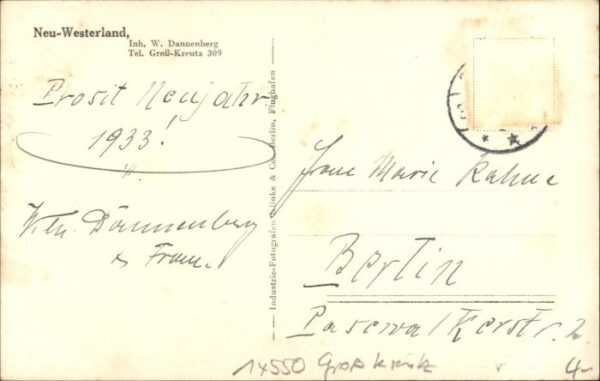 Neu-Westerland,
Inh. W. Dannenberg
Tel. Groß-Kreutz 309
Prosit Neujahr
1933!
Wilh. Dannenberg
& Frau.
Industrie-Fotografen Klinke & Co., Berlin, Flughafen
Frau Marie Kahne
Berlin
Pasewalkerstr. 2
14550 Groß Kreutz
4-